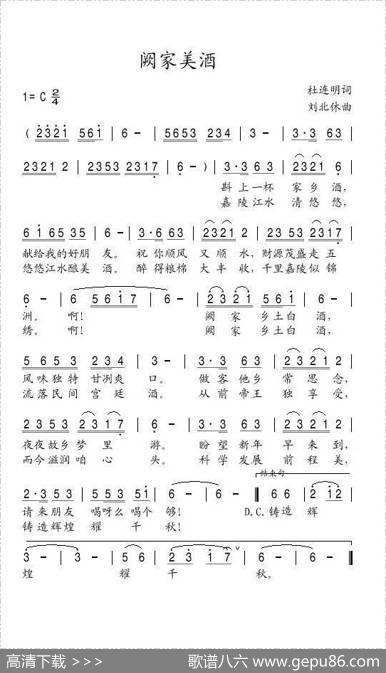 阙家美酒
1=C 2/4
杜连明词
刘北休曲
( 2321 561 | 6 - | 5653 234 | 3 - | 3·3 63 |
2321 2 | 2353 2317 | 6 - ) | 3·3 63 | 2321 6 |
斟上一杯 家乡酒,
嘉陵江水 清悠悠,
6165 35 | 6 - | 3·6 63 | 2317 6 | 5·3 5653 |
献给我的好朋 友。 祝你顺风 又顺水, 财源茂盛走五
悠悠江水酿美 酒。 醉得粮棉 大丰收, 千里嘉陵似锦
6 - | 6 - | 5617 | 6 - | 2321 2321 | 561 6 |
洲。 啊! 阙家 乡土白酒,
绣。 啊! 阙家 乡土白酒,
5653 234 | 3 - | 3·3 63 | 2321 6 |
风味独特 甘冽爽 口。 做客他乡 常思念,
流落民间 宫廷 酒。 从前帝王 独享受,
2353 2317 | 6 - | 3·3 63 | 2321 2 |
夜夜故乡梦里 游。 盼望新年 早来到,
而今滋润咱心 头。 科学发展 前程美,
结束句
2·353 | 553 51 | 6 - | 66 56 | 2 12 |
请来朋友 喝呀么喝个 够! D.C.铸造 辉
铸造辉煌 耀千 秋!
3 - | 3 - | 56 2 | 23 17 | 6 - | 6 - | 6 - ‖
煌 耀 千 秋。
高清下载 >>>
歌谱八六 www.gepu86.com